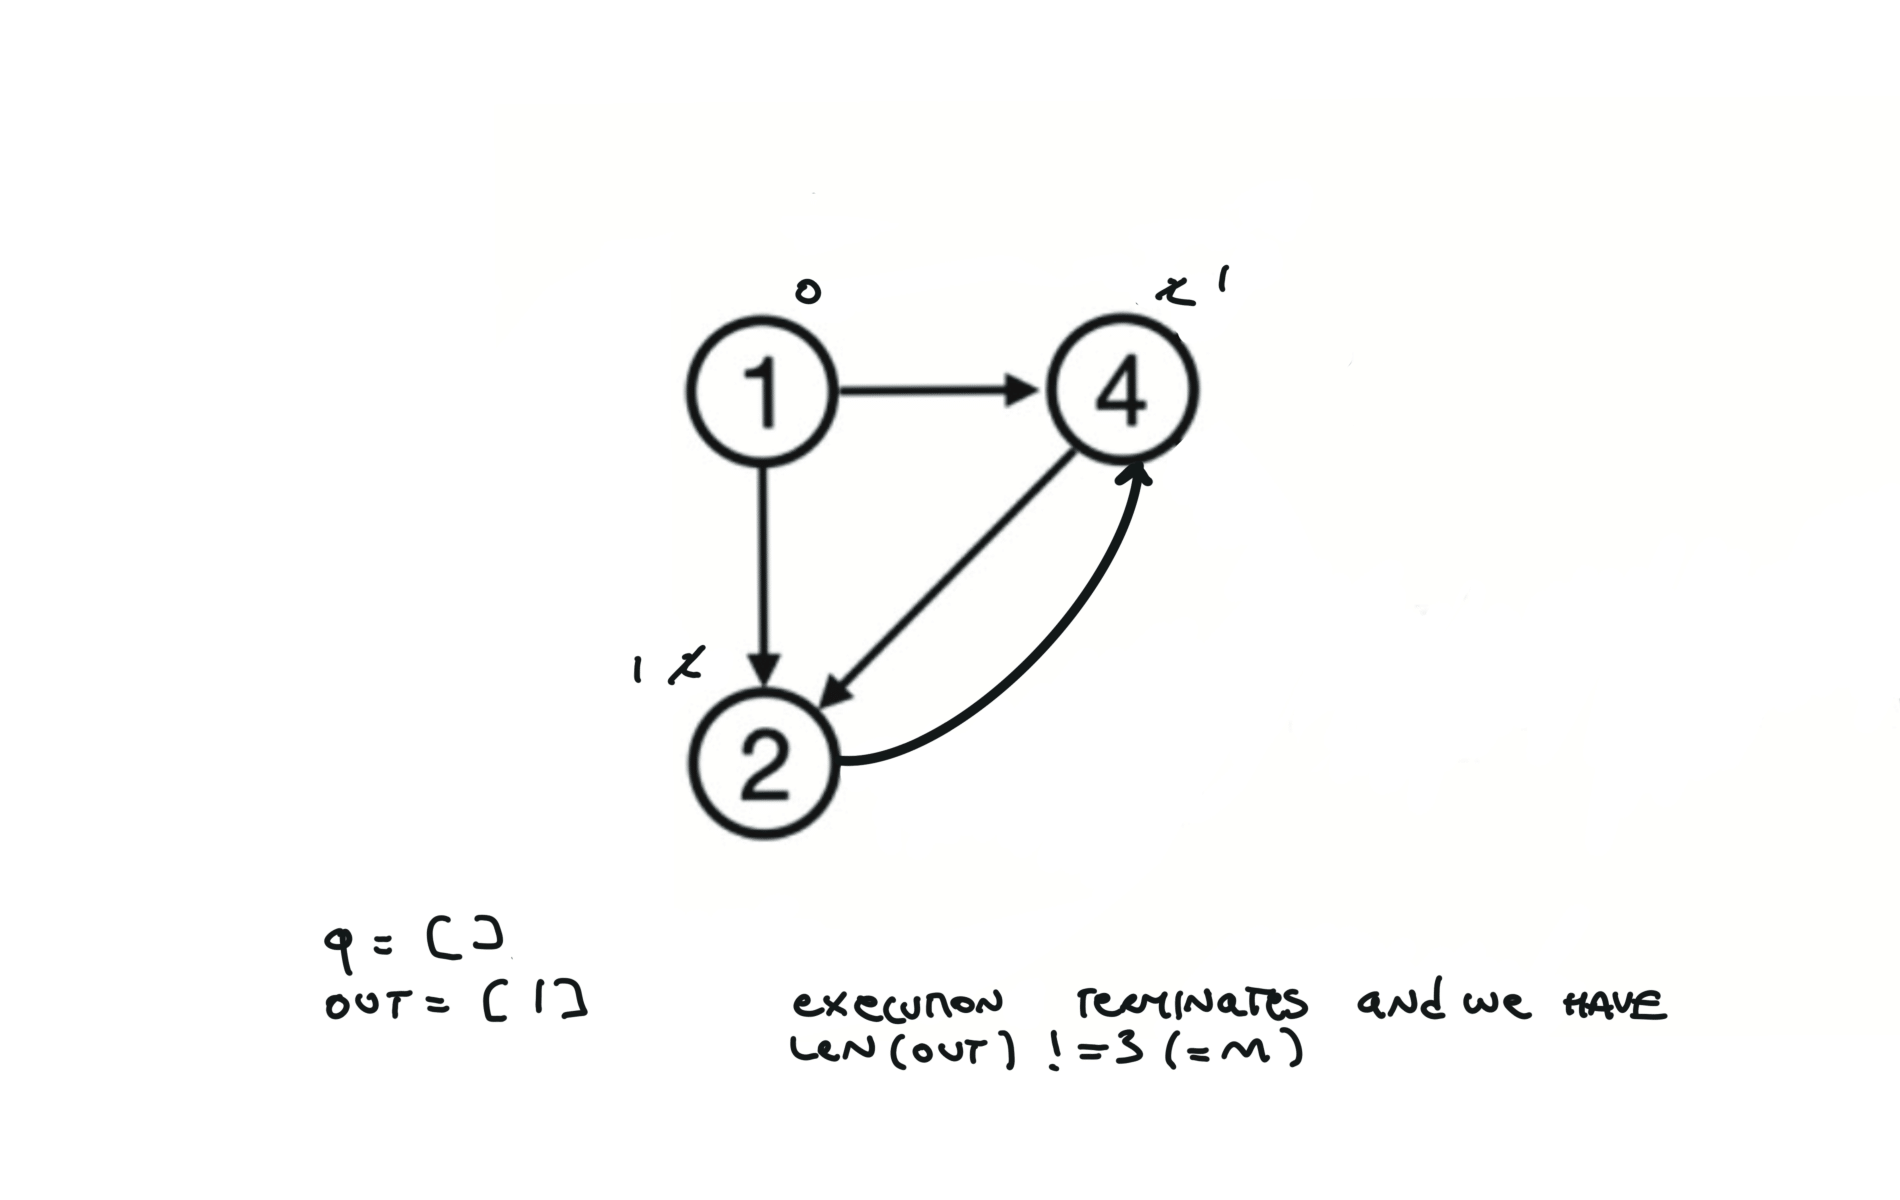 0
2 1
1
4
1 2
2
q = []
OUT = [1]
execution TERMINATES and we HAVE
LEN(OUT) != 3 (= n)